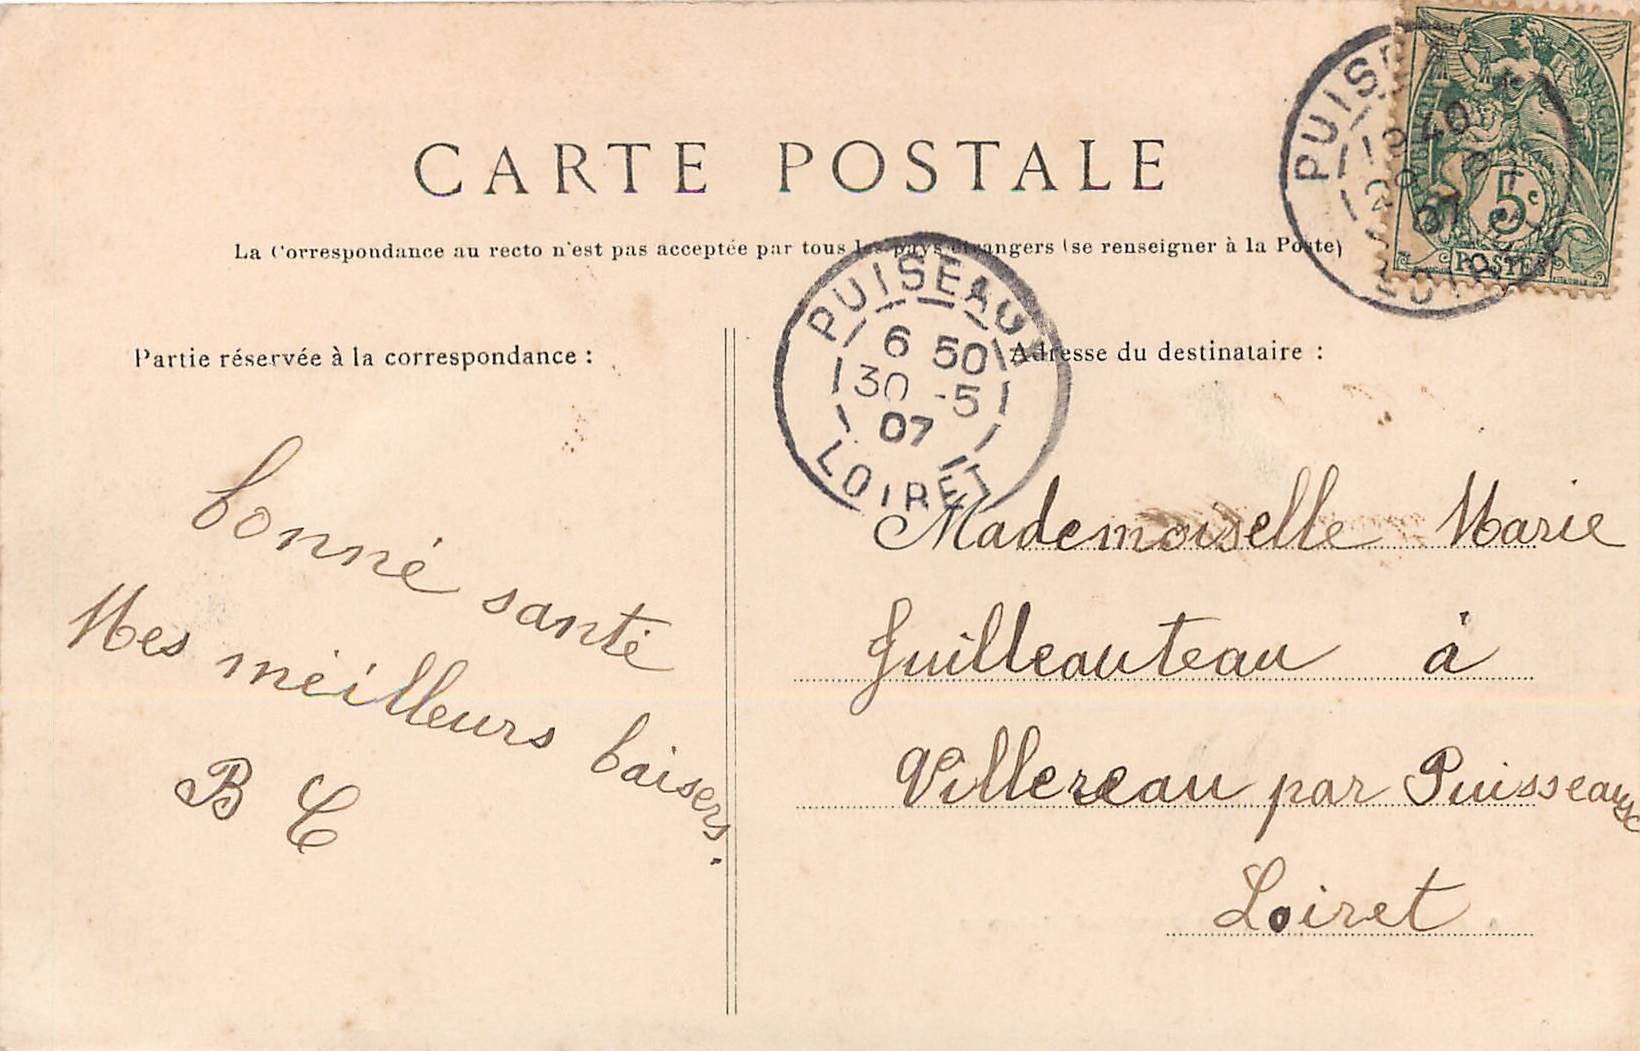 CARTE POSTALE
La Correspondance au recto n'est pas acceptée par tous les pays étrangers (se renseigner à la Poste)
Partie réservée à la correspondance :
Adresse du destinataire :
PUISEAUX
6 50
30 -5
07
LOIRET
07
LOIRET
RÉPUBLIQUE FRANÇAISE
5c
POSTES
bonné santé
Mes méilleurs baisers.
B C
Mademoiselle Marie
Guilleauteau à
Villereau par Puisseaux
Loiret